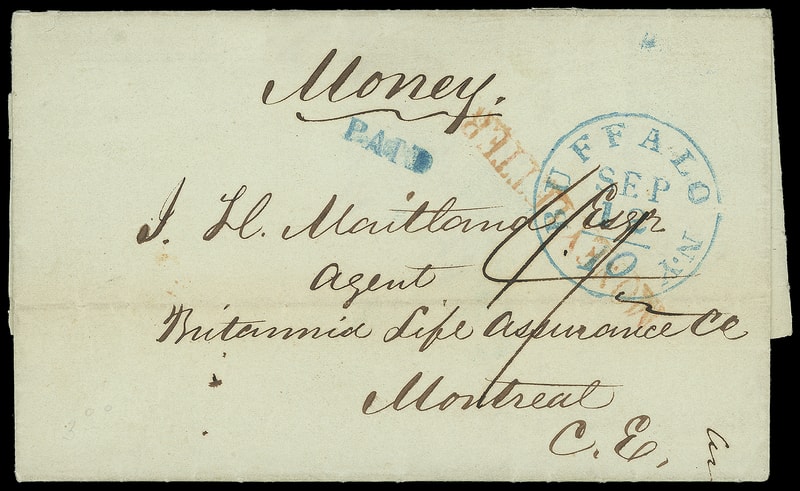 Money.
PAID
MONEY LETTER
BUFFALO N.Y.
SEP
12
10
J. H. Maitland Esqr
Agent
Britannia Life Assurance Co
Montreal
C.E.